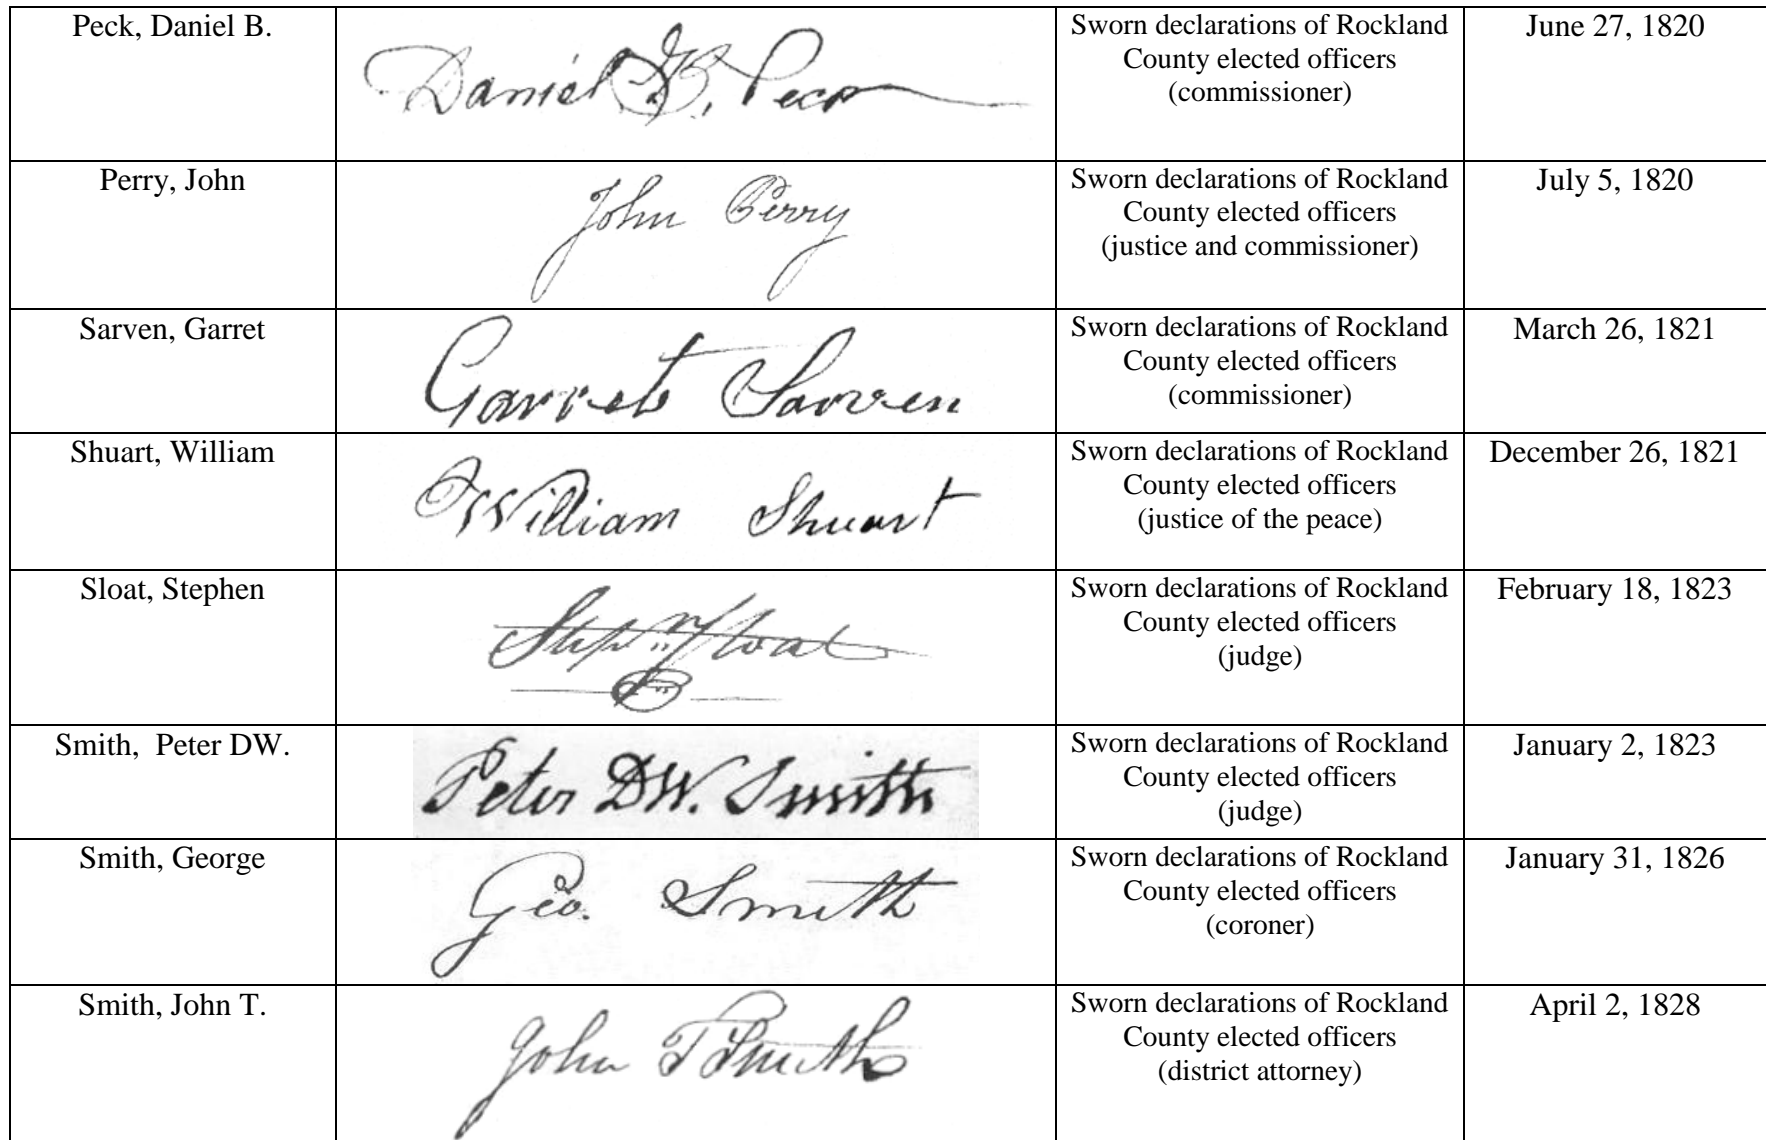 Peck, Daniel B.
Daniel B. Peck
Sworn declarations of Rockland
County elected officers
(commissioner)
June 27, 1820
Perry, John
John Perry
Sworn declarations of Rockland
County elected officers
(justice and commissioner)
July 5, 1820
Sarven, Garret
Garret Sarven
Sworn declarations of Rockland
County elected officers
(commissioner)
March 26, 1821
Shuart, William
William Shuart
Sworn declarations of Rockland
County elected officers
(justice of the peace)
December 26, 1821
Sloat, Stephen
Stepn Sloat
Sworn declarations of Rockland
County elected officers
(judge)
February 18, 1823
Smith, Peter DW.
Peter DW. Smith
Sworn declarations of Rockland
County elected officers
(judge)
January 2, 1823
Smith, George
Geo. Smith
Sworn declarations of Rockland
County elected officers
(coroner)
January 31, 1826
Smith, John T.
John T Smith
Sworn declarations of Rockland
County elected officers
(district attorney)
April 2, 1828